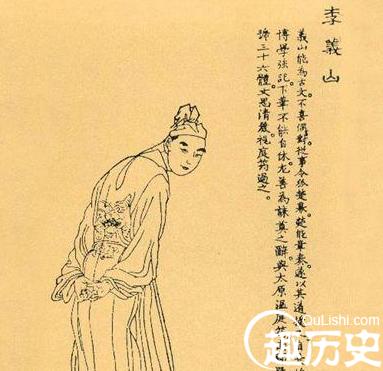 李義山
義山能為古文。不喜偶對。從事令狐楚幕。楚能章奏。遂以其道
博學強記。下筆不能自休。尤善為誄奠之辭。與太原溫庭
號三十六體。文思清麗。視庭筠過之。
QuLishi.com
趣历史